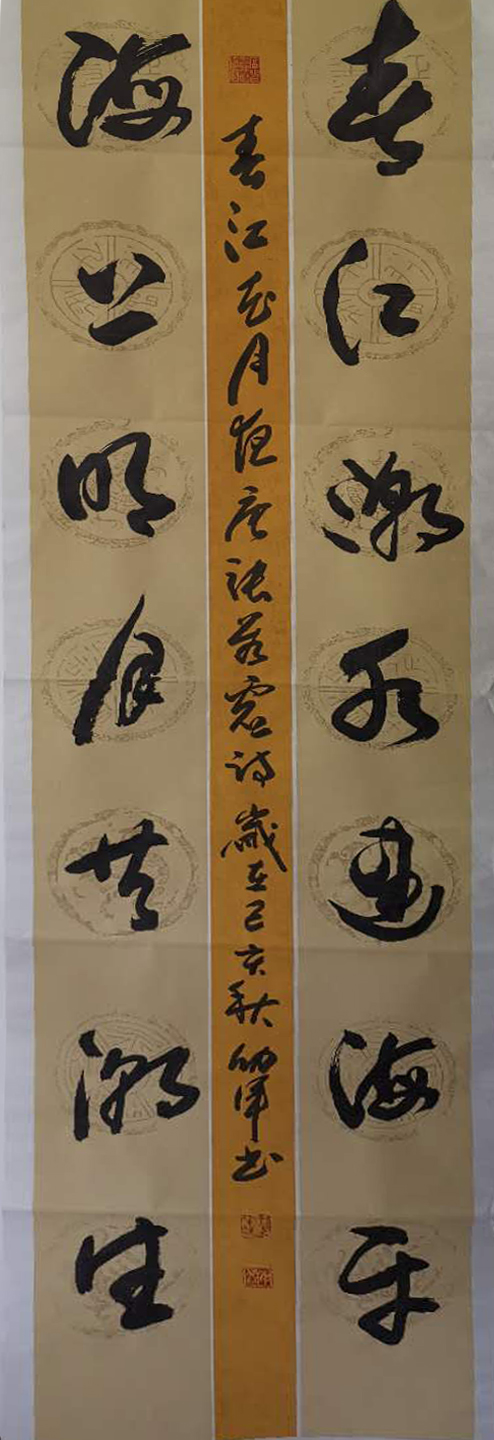 春江潮水連海平
海上明月共潮生
春江花月夜唐張若虛詩歲在己亥秋軍书